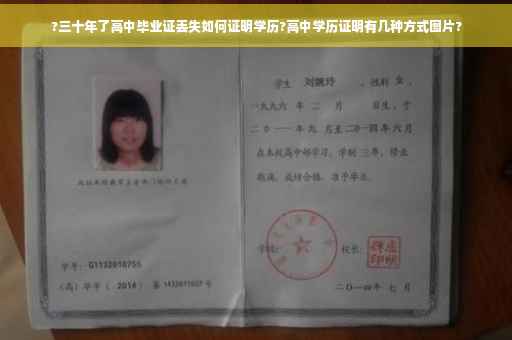 ?三十年了高中毕业证丢失如何证明学历?高中学历证明有几种方式图片?
学生 刘婉玲 ，性别 女 ，
一九九六 年 二 月 日生，于
二〇一一年九 月至二〇一四年六月
在本校高中部学习，学制 三年，修业
期满，成绩合格，准予毕业。
学校： 校长：
学号： G1132010755
（高）毕字（ 2014 ）第 1432011037 号
二〇一四年 七 月